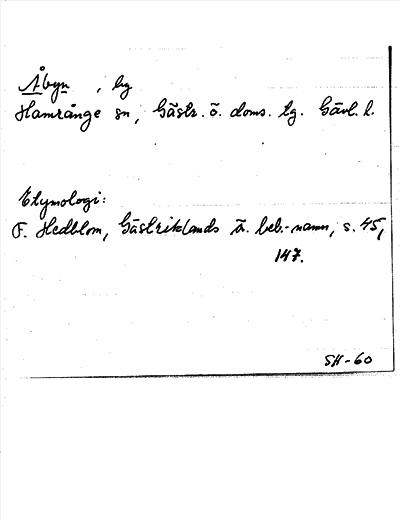 Åbyn, by
Hamrånge sn, Gästr. ö. doms. tg. Gävl. l.
Etymologi:
F. Hedblom, Gästriklands ä. beb.-namn, s. 45,
147.
SH-60